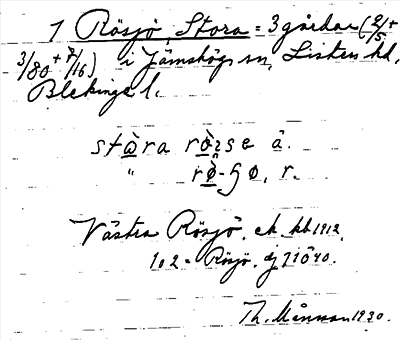 1 Rösjö, Stora = 3 gårdar (2/5 +
3/80 + 7/16) i Jämshögs sn, Listers hd,
Blekinge l.
stὰra rὸ̣ʂe å.
" rὸ-ʂo, r.
Västra Rösjö, ek. kb 1912.
1 o 2 = Rösjö, dj 11040.
Th. Månsson 1930.